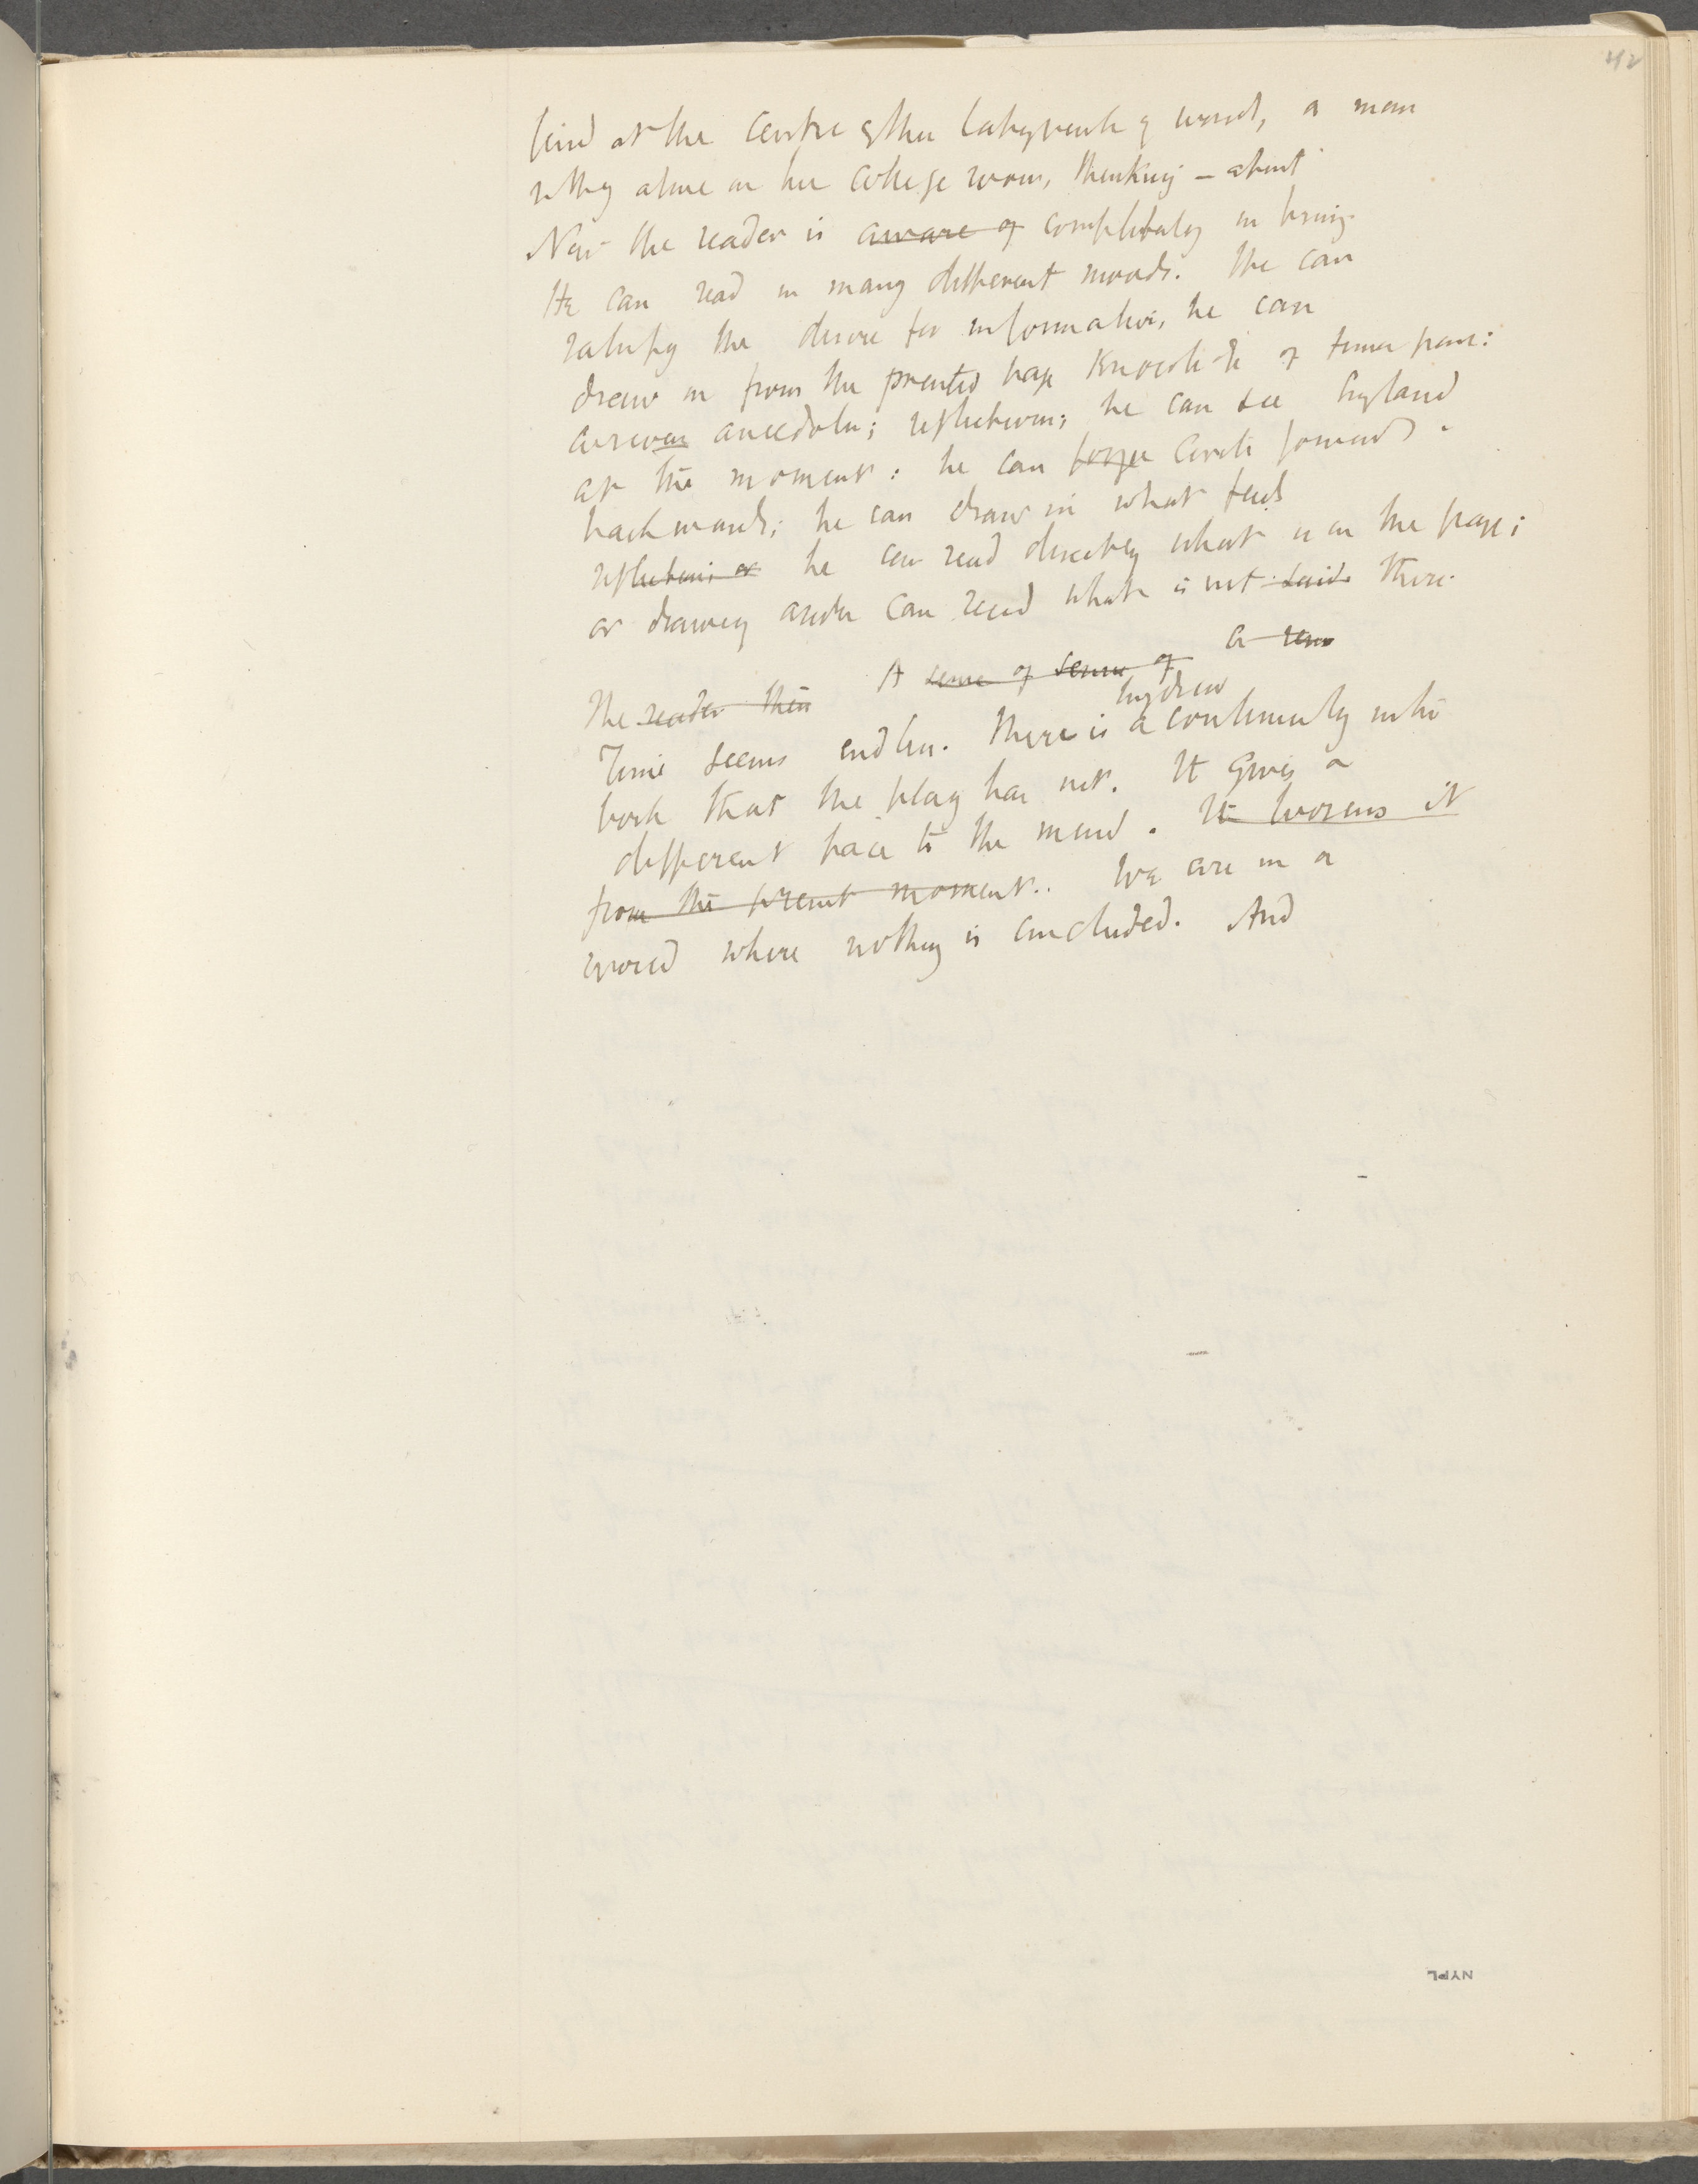 42
find at the centre of this labyrinth of words, a man
sitting alone in his college room, thinking – about
Now the reader is aware of completely in being.
He can read in many different moods. He can
satisfy the desire for information, he can
draw in from the printed page knowledge of time past:
anecdotes; reflections; he can see England
at the moment: he can forge circle forward &
backwards; he can draw in what feeds
reflections or he can read directly what is on the page;
or drawing aside can read what is not said there.
A sense of sense of a
The reader then
Time seems endless. There is a continuity in the
book that the play has not. It gives a
different pace to the mind. It loosens it
from the present moment.. We are in a
world where nothing is concluded. And
NYPL